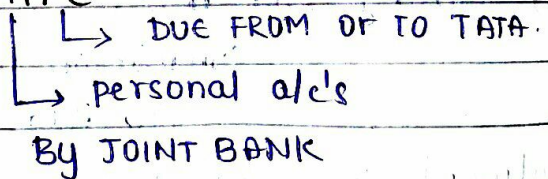 ↳ DUE FROM or TO TATA.
↳ personal a/c's
By JOINT BANK